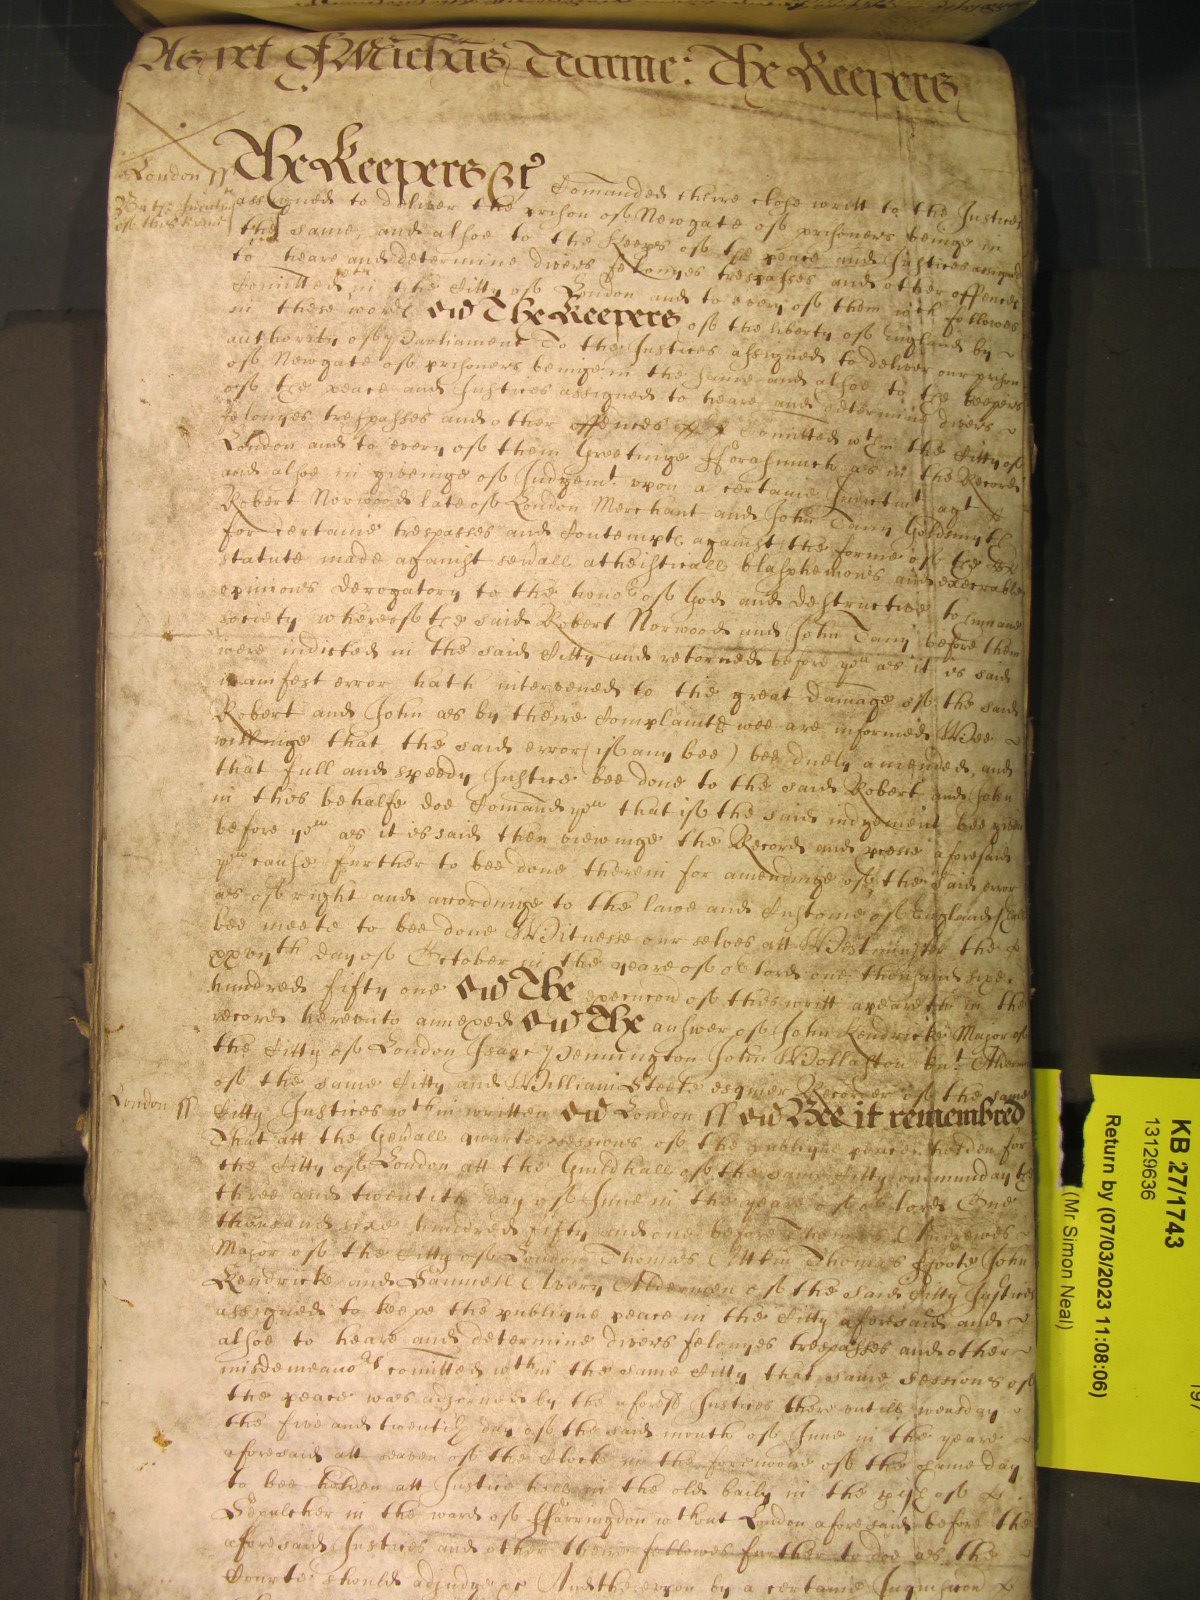 As yet Of Michis Tearme: The Keepers
London ss The Keepers &c Comanded theire close writt to the Justices
assigned to deliver the prison of Newgate of prisoners beinge in
the same, and alsoe to the Keepers of the peace and Justices assigned
to heare and determine divers felonyes trespasses and other offences
Comitted in the Citty of London and to every of them wch followes
in these words ss The Keepers of the liberty of England by
authority of Parliament To the Justices assigned to deliver our prison
of Newgate of prisoners beinge in the same and alsoe to the keepers
of the peace and Justices assigned to heare and determine divers
felonyes trespasses and other offences Comitted wthin the Citty of
London and to every of them Greetinge Fforasmuch as in the Record
and alsoe in giveinge of Judgemt upon a certaine Indictmt agt
Robert Norwood late of London Merchant and John Tany Goldsmyth
for certaine trespasses and Contempts against the forme of the
statute made against sevall atheisticall blasphemous and execrable
opinions derogatory to the honor of God and destructive to humane
society whereof the said Robert Norwood and John Tany before them
were indicted in the said Citty and returned before you as it is said
manifest error hath intervened to the great damage of the said
Robert and John as by theire Complaints wee are informed Wee
willinge that the said error (if any bee) bee duely amended, and
that full and speedy Justice bee done to the said Robert and John
in this behalfe doe Comand you that if the said iudgement bee given
before you as it is said then viewinge the Record and processe aforesaid
you cause further to bee done therein for amendinge of the said error
as of right and accordinge to the lawe and Custome of England shall
bee meete to bee done Wittnesse our selves att Westminster the
xxvyth day of October in the yeare of or lord one thousand sixe
hundred fifty one The execucon of this writt apeareth in the
record hereunto annexed The answer of John Kendricke Maior of
the Citty of London Isaac Pennington John Wollaston knts Alderm
of the same Citty and William Steele esquier Recorder of the same
London ss Citty Justices wthin written London ss Bee it remembred
That att the Gen'all quarter sessions of the publique peace holden for
the Citty of London att the Guildhall of the same Citty on munday the
three and twentith day of June in the yeare of or lord One
thousand sixe hundred fifty and one before Thomas Andrewes
Maior of the Citty of London Thomas Attkin Thomas Ffoote John
Kendricke and Samuell Avery Aldermen of the said Citty Justices
assigned to keepe the publique peace in the Citty aforesaid and
alsoe to heare and determine divers felonyes trespasses and other
misdemeanors comitted wthin the same Citty that same sessions of
the peace was adjorned by the aforesd Justices there untill wensday
the five and twentith day of the said month of June in the yeare
aforesaid att seaven of the Clocke in the forenoone of the same day
to bee holden att Justice hall in the old baily in the pish of St
Sepulcher in the ward of Ffarringdon wthout London aforesaid before the
aforesaid Justices and other theire fellowes further to doe as the
Courte should adjudge &c And thereupon by a certaine Inquisicon
KB 27/1743
13129636
Return by (07/03/2023 11:08:06)
(Mr Simon Neal)